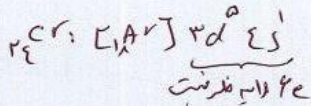 ₂₄Cr: [₁₈Ar] ۳d^۵ ۴s^۱
۶e لایه ظرفیت